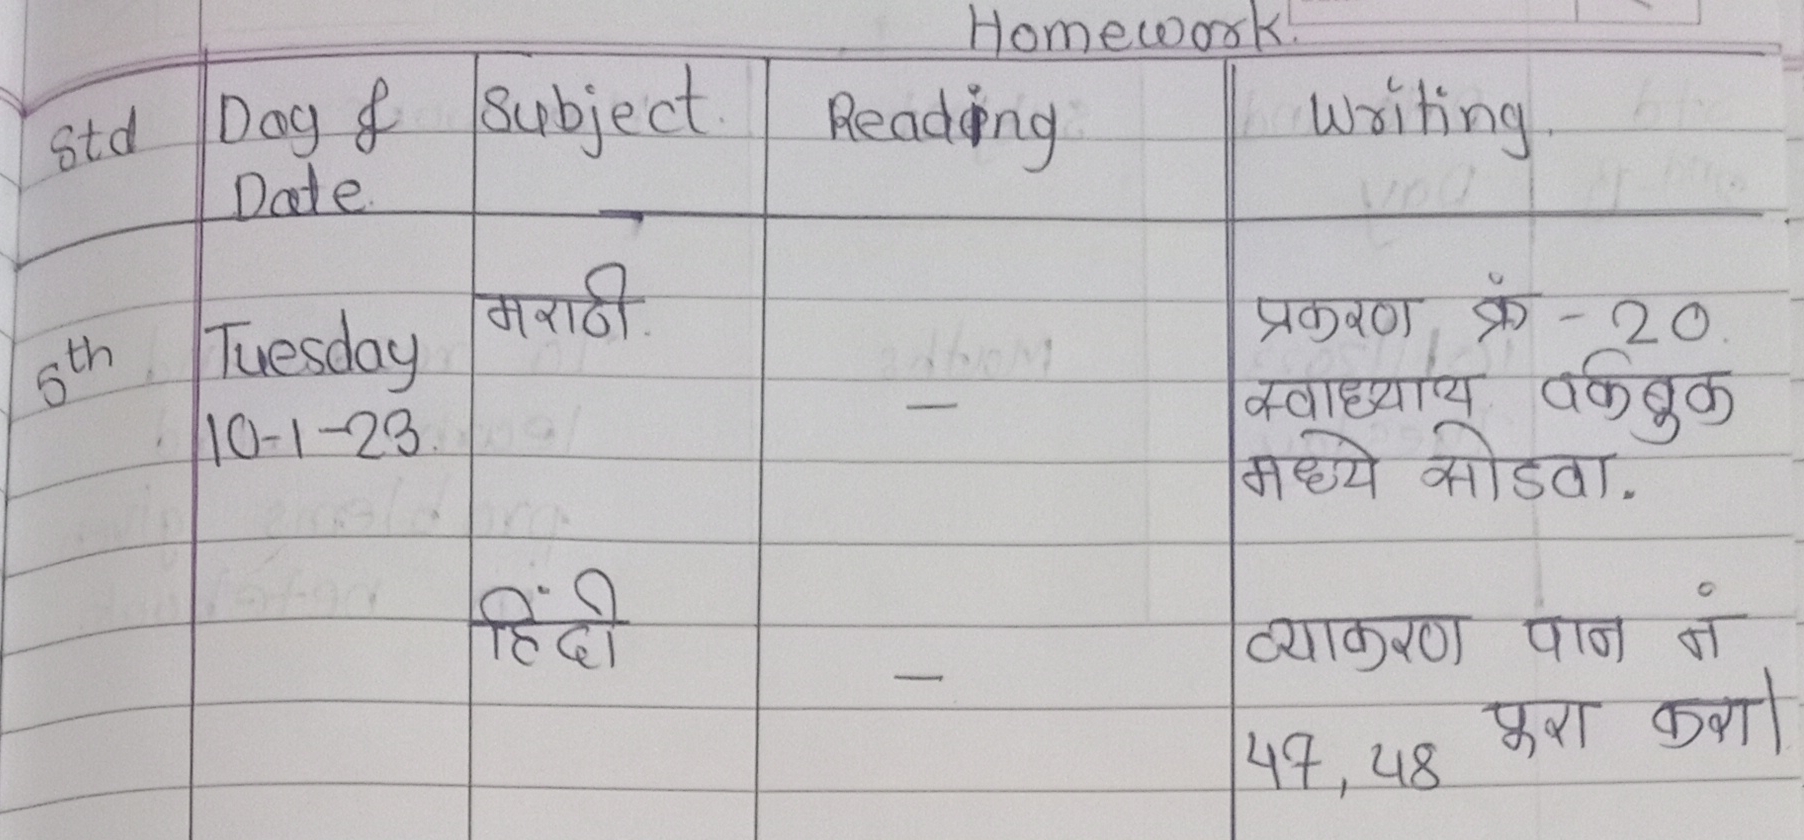 Homework.
Std Day & Subject. Reading Writing.
Date.
मराठी. प्रकरण क्रं - 20.
5th Tuesday — स्वाध्याय वर्कबुक
10-1-23. मध्ये सोडवा.
हिंदी — व्याकरण पान नं
47, 48 पूरा करा।